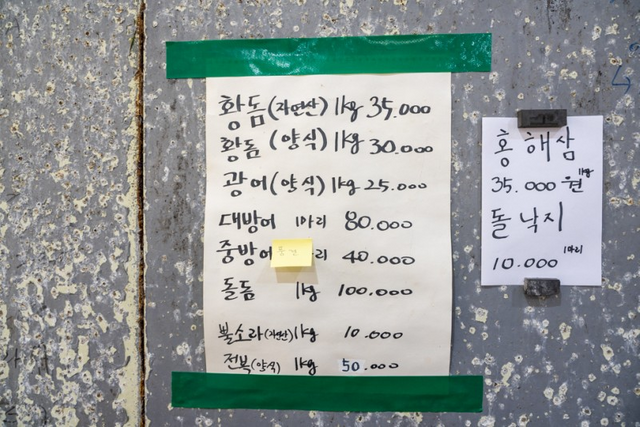 황돔(자연산) 1kg 35.000
황돔(양식) 1kg 30.000
광어(양식) 1kg 25.000
대방어 1마리 80.000
중방어 마리 40.000
돌돔 1kg 100.000
뿔소라(자연산) 1kg 10.000
전복(양식) 1kg 50.000
홍해삼
1kg
35.000원
돌낙지
1마리
10.000